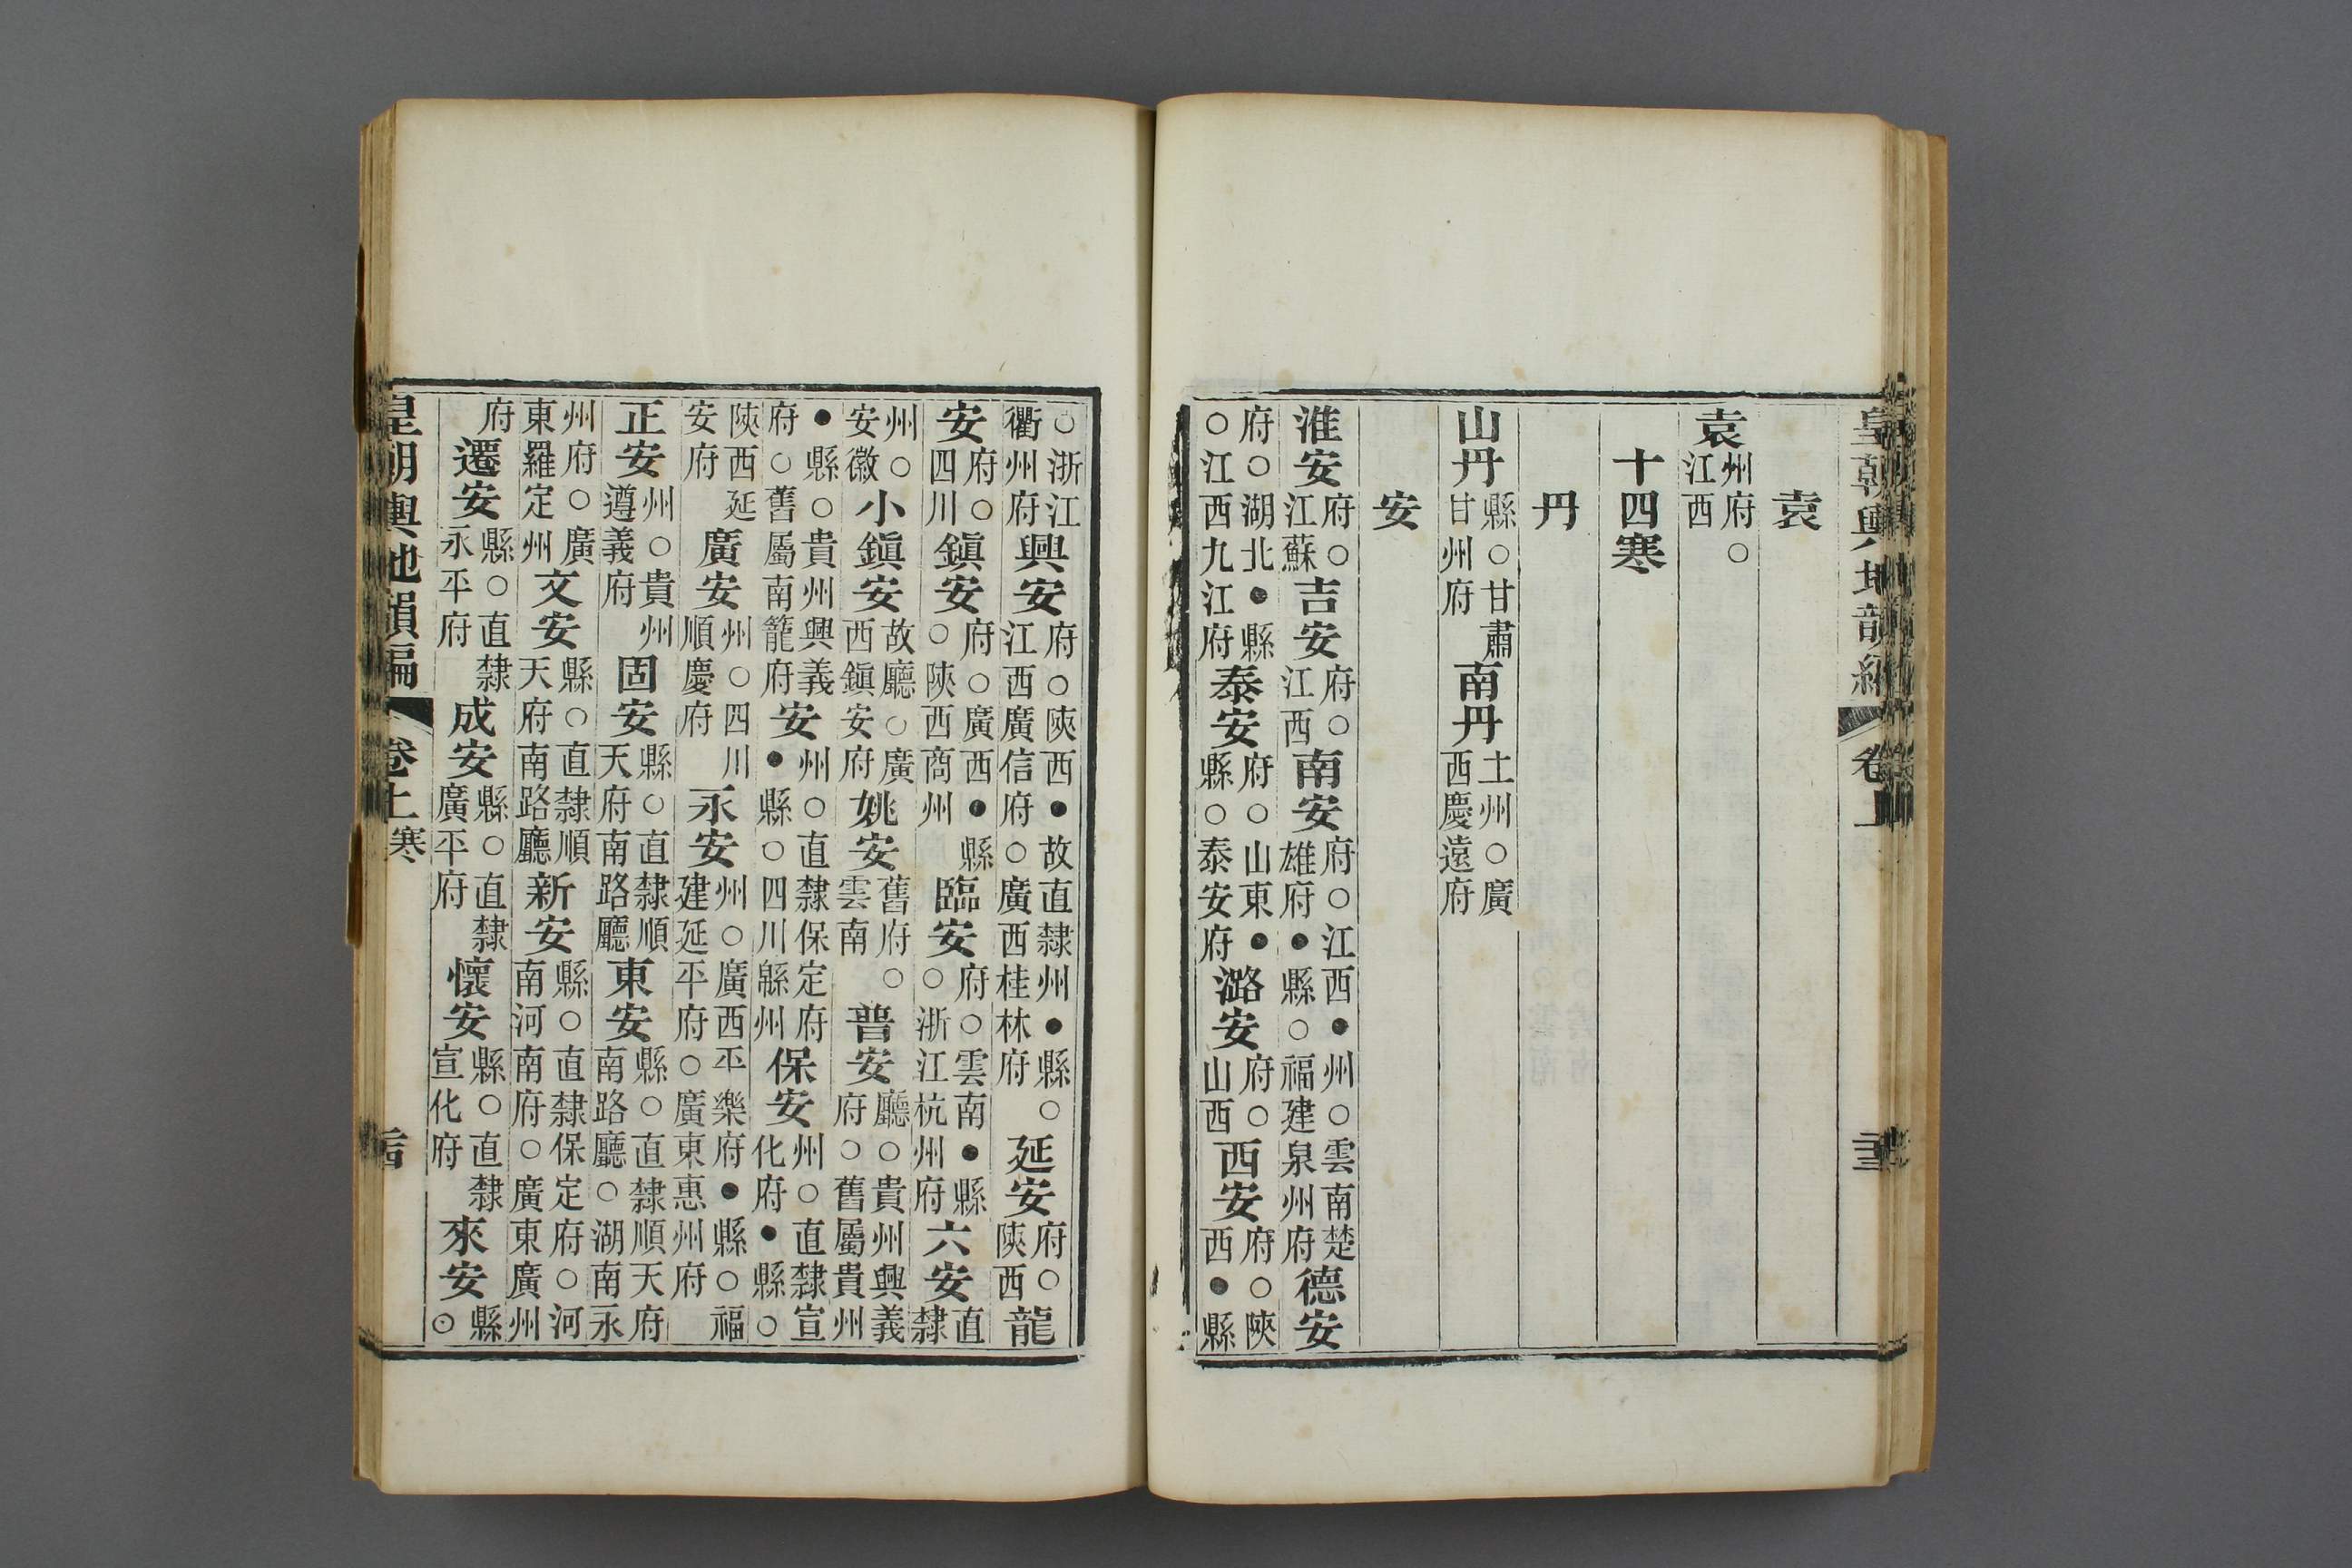 皇朝輿地韻編 卷上
袁
袁州府○江西
十四寒
丹
山丹縣○甘肅甘州府南丹土州○廣西慶遠府
安
淮安府○江蘇吉安府○江西南安府○江西●州○雲南楚雄府●縣○福建泉州府德安
府○湖北●縣○江西九江府泰安府○山東●縣○泰安府潞安府○山西西安府○陝西●縣
○浙江衢州府興安府○陝西●故直隸州●縣○江西廣信府○廣西桂林府延安府○陝西龍
安府○四川鎮安府○廣西●縣○陝西商州臨安府○雲南●縣○浙江杭州府六安直隸
州○安徽小鎮安故廳○廣西鎮安府姚安舊府○雲南普安廳○貴州興義府○舊屬貴州
●縣○貴州興義府○舊屬南籠府安州○直隸保定府●縣○四川緜州保安州○直隸宣化府●縣○
陝西延安府廣安州○四川順慶府永安州○廣西平樂府●縣○福建延平府○廣東惠州府
正安州○貴州遵義府固安縣○直隸順天府南路廳東安縣○直隸順天府南路廳○湖南永
州府○廣東羅定州文安縣○直隸順天府南路廳新安縣○直隸保定府○河南河南府○廣東廣州
府遷安縣○直隸永平府成安縣○直隸廣平府懷安縣○直隸宣化府來安縣○
皇朝輿地韻編 卷上 寒